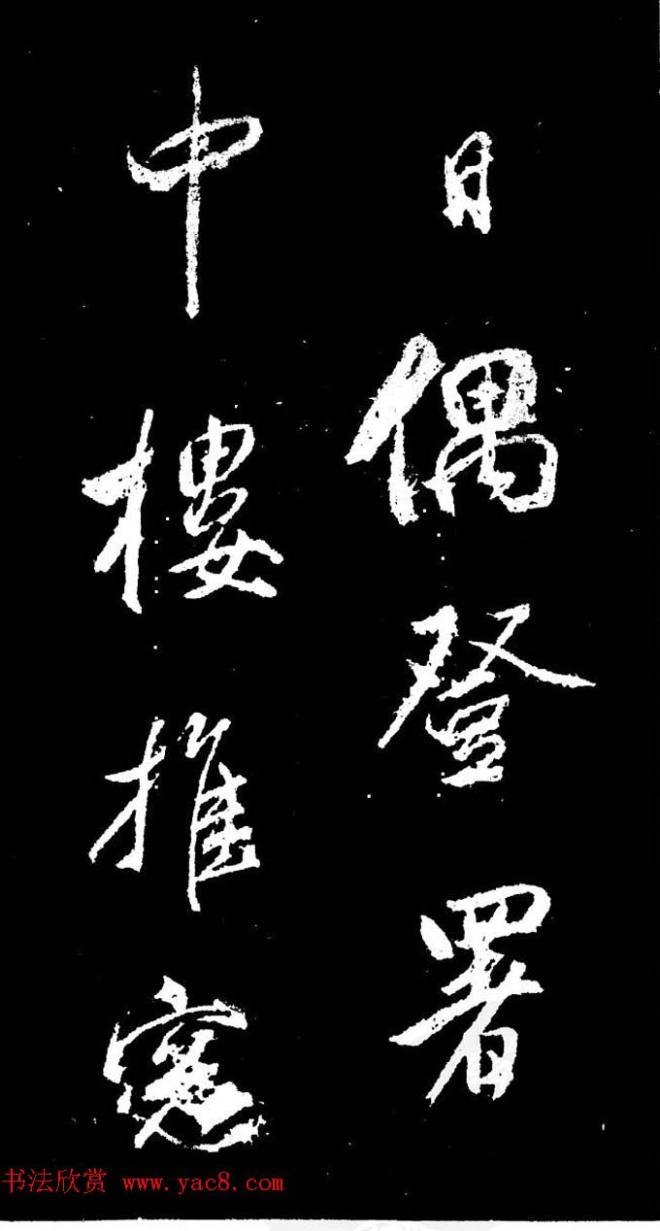 日偶登署
中樓推窓
书法欣赏 www.yac8.com